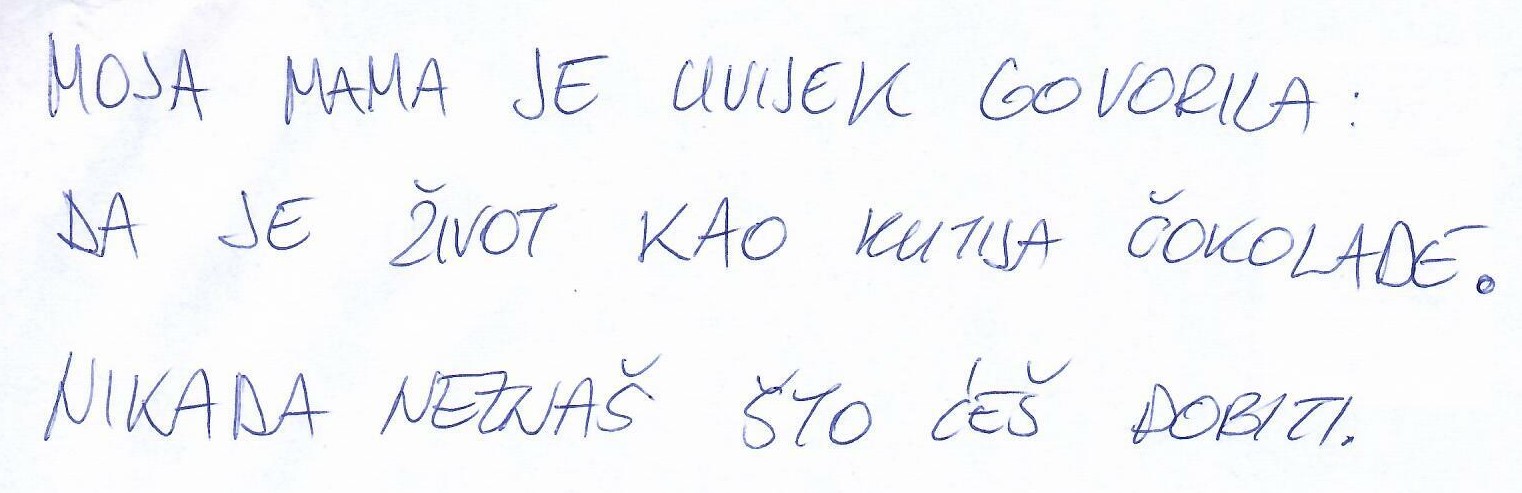 MOJA MAMA JE UVIJEK GOVORILA:
DA JE ŽIVOT KAO KUTIJA ČOKOLADE.
NIKADA NEZNAŠ ŠTO ĆEŠ DOBITI.